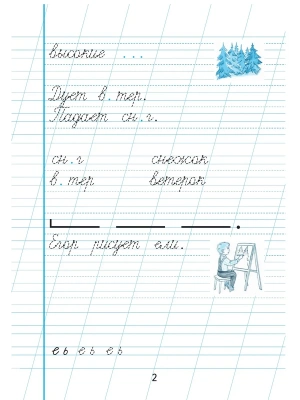 высокие ...
Дует в.тер.
Падает сн.г.
сн.г снежок
в.тер ветерок
Егор рисует ели.
е ь е ь е ь
2